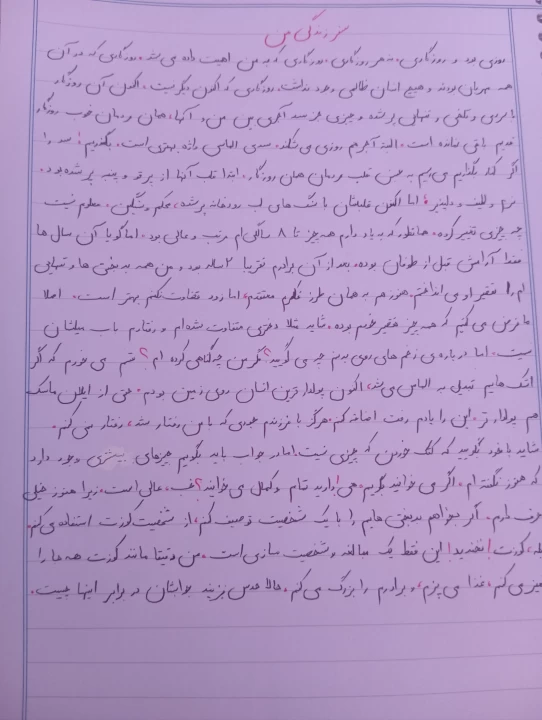 سرزندگی من
روزی بود و روزگاری، نه هر روزگاری. روزگاری که به من اهمیت داده می شد. روزگاری که در آن
همه مهربان بودند و هیچ انسان ظالمی وجود نداشت. روزگاری که اکنون دیگر نیست. اکنون آن روزگار
با سردی و تلخی و تنهایی پر شده و چیزی جز سد آهنی بین من و آنها، همان مردمان خوب روزگار
قدیم باقی نمانده است. البته آهن هم روزی می شکند. سدی الماسی واژه بهتری است. بگذریم! سد را
اگر کنار بگذاریم می رسیم به جنس قلب مردمان همان روزگار. ابتدا قلب آنها از پر قو و پنبه پر شده بود.
نرم و لطیف و دلپذیر! اما اکنون قلبشان با سنگ های لب رودخانه پر شده، محکم و سنگین. معلوم نیست
چه چیزی تغییر کرده. همانطور که به یاد دارم همه چیز تا ۸ سالگی ام مرتب و عالی بود. اما گویا آن سال ها
فقط آرامش قبل از طوفان بوده. بعد از آن برادرم تقریبا ۲ ساله بود و من همه بدبختی ها و تنهایی
ام را تقصیر او می انداختم. هنوز هم به همان طرز فکرم معتقدم، اما زود قضاوت نکنم بهتر است. اصلا
ما فرض می کنیم که همه چیز تقصیر خودم بوده. شاید مثلا دختری متفاوت شده ام و رفتارم باب میلشان
نیست. اما درباره ی زخم های روی بدنم چه می گویید؟ مگر من چه گناهی کرده ام؟ قسم می خورم که اگر
اشک هایم تبدیل به الماس می شد، اکنون پولدار ترین انسان روی زمین بودم. حتی از ایلان ماسک
هم پولدار تر. این را یادم رفت اضافه کنم. هرگز با فرزندم جوری که با من رفتار شد، رفتار نمی کنم.
شاید با خود بگویید که کتک خوردن که چیزی نیست. اما در جواب باید بگویم چیزهای بیشتری وجود دارد
که هنوز نگفته ام. اگر می خوانید بگویم. هی! دارید تمام و کمال می خوانید؟ خب، عالی است. زیرا هنوز خیلی
حرف دارم. اگر بخواهم بدبختی هایم را با یک شخصیت توصیف کنم، از شخصیت کوزت استفاده می کنم.
بله، کوزت! نخندید! این فقط یک مبالغه و شخصیت سازی است. من دقیقا مانند کوزت همه جا را
تمیز می کنم، غذا می پزم، و برادرم را بزرگ می کنم. حالا حدس بزنید جوابشان در برابر اینها چیست.